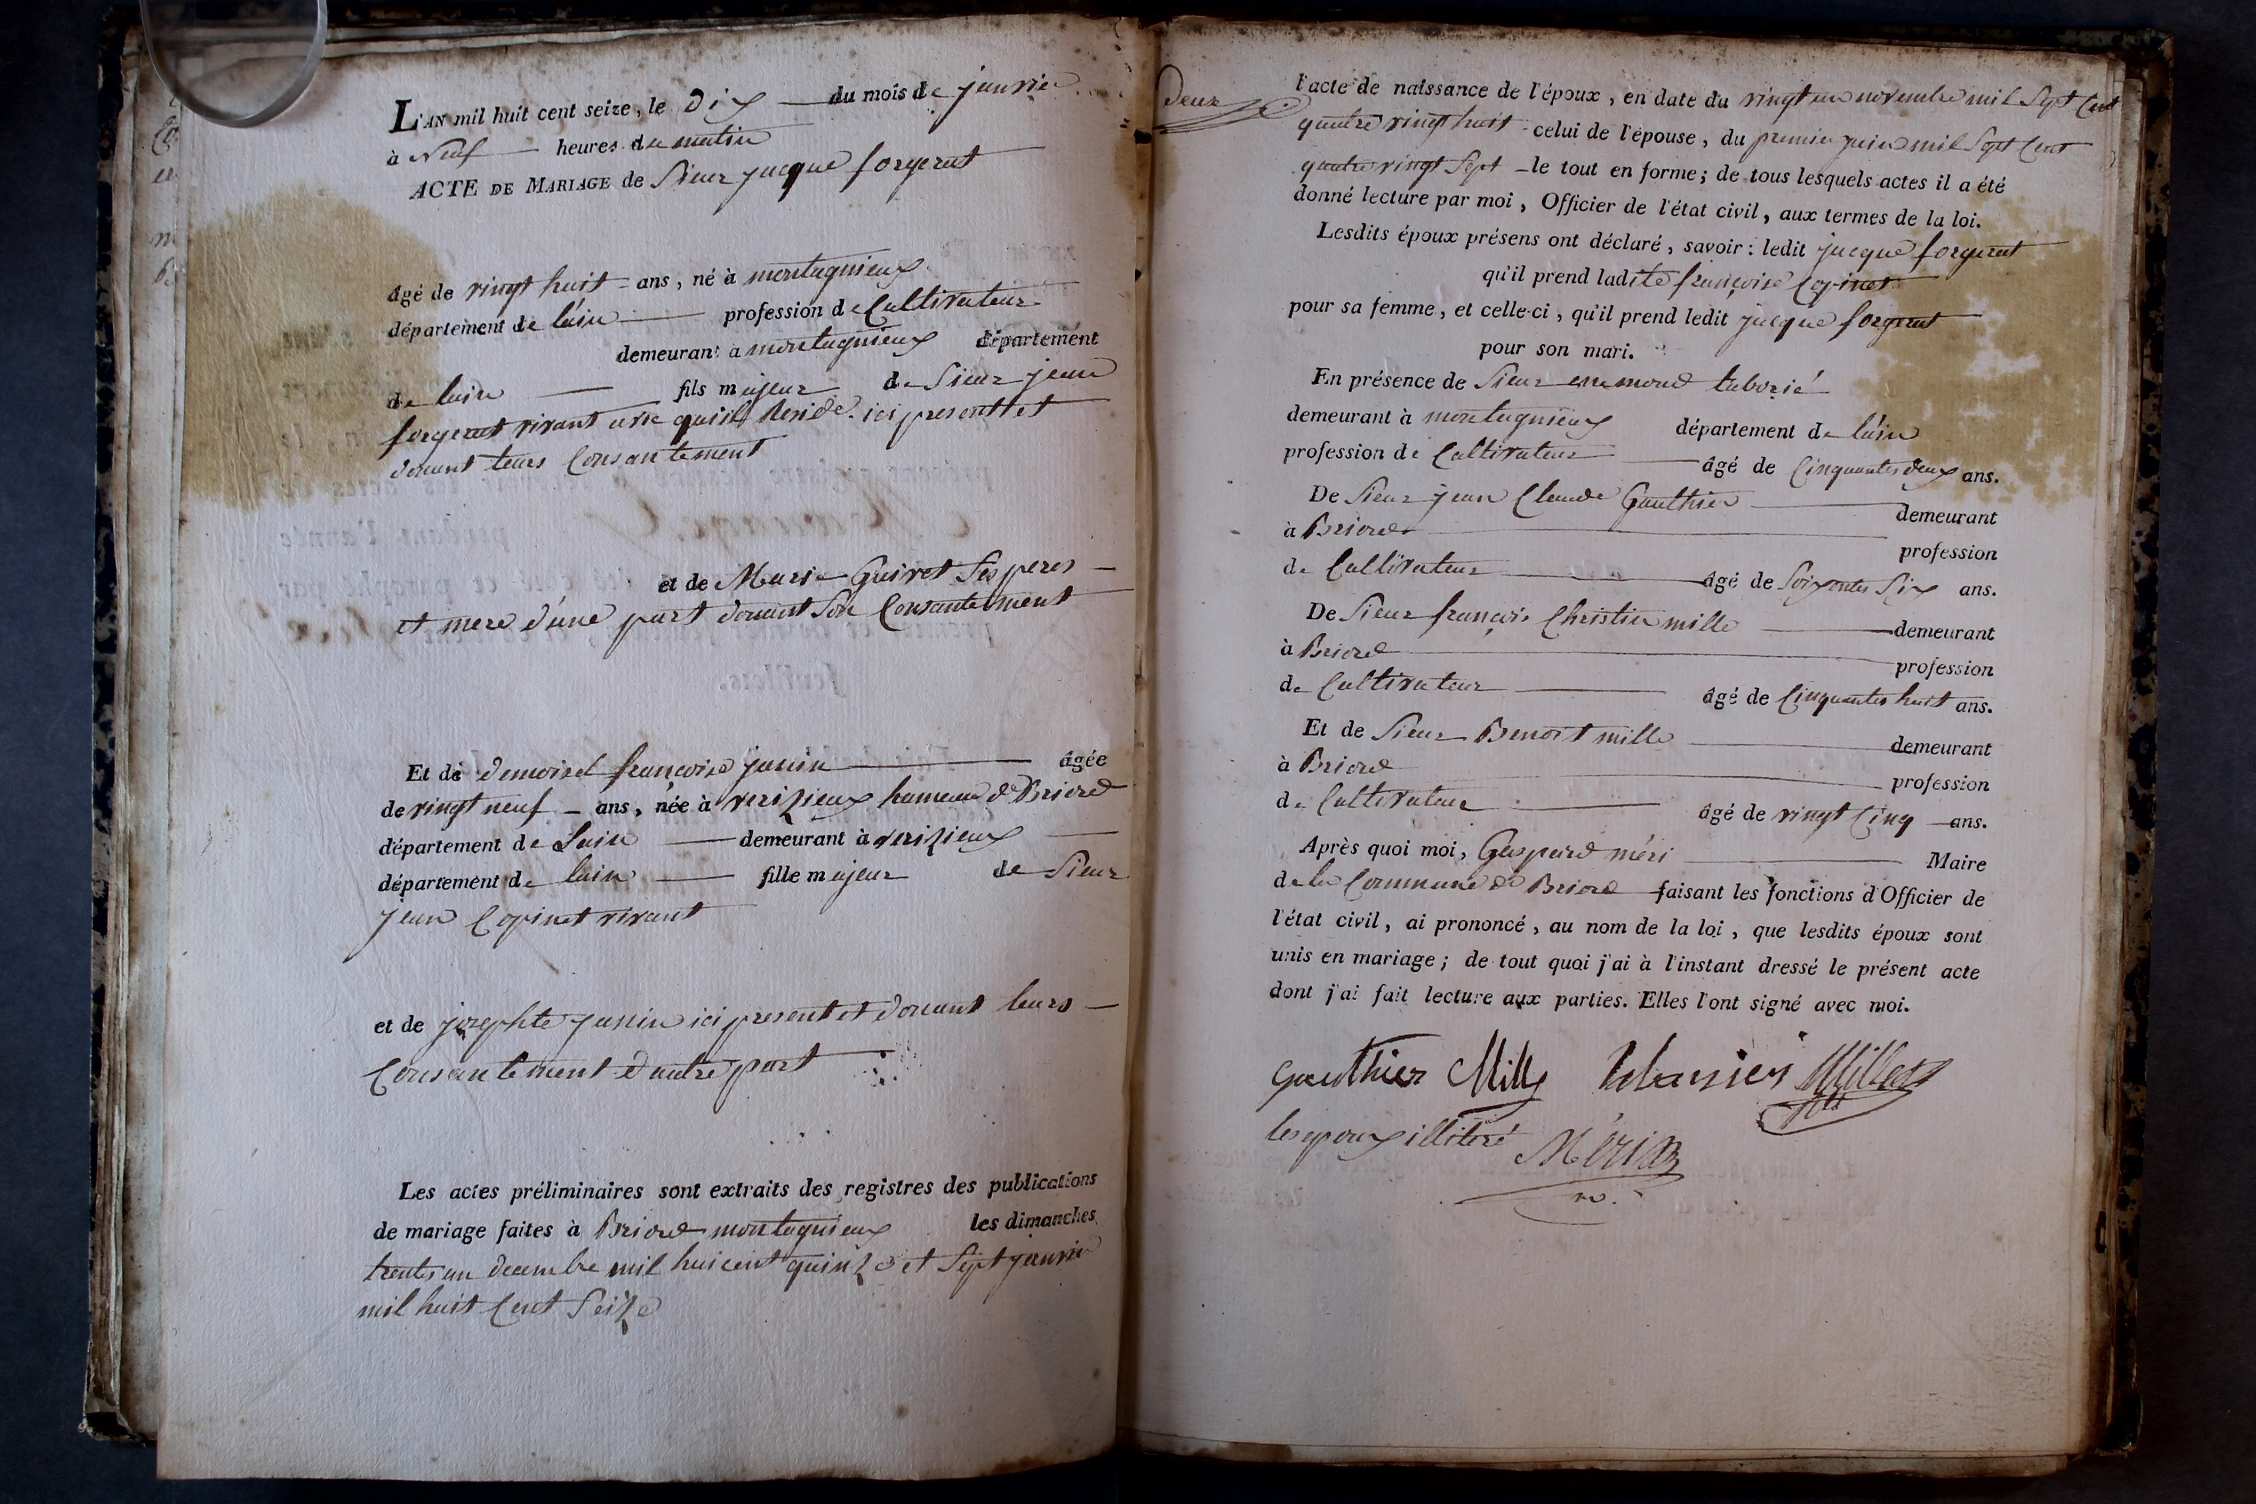 L'AN mil huit cent seize, le Dix du mois de janvier
à Neuf heures du matin
ACTE DE MARIAGE de Sieur jacque forgerat
âgé de vingt huit ans, né à montagnieux
département de lain profession de Cultivateur
demeurant à montagnieux département
de lain fils majeur de Sieur jean
forgerat vivant avec quil Reside ici present et
donant leurs Consantement
et de Marie Guivet Ses peres
et mere d'une part donant Son Consantement
Et de demoisel françoise janin âgée
de vingt neuf ans, née à verizieux hameau de Briord
département de Lain demeurant à verizieux
département de lain fille majeur de Sieur
jean Copinet vivant
et de josephte janin ici present et donant leurs
Consantement d'autre part
Les actes préliminaires sont extraits des registres des publications
de mariage faites à Briord montagnieux les dimanches
trentes un decembre mil huicent quinze et Sept janvier
mil huit Cent Seize
deux
l'acte de naissance de l'époux, en date du vingt un novembre mil Sept Cent
quatre vingt huit celui de l'épouse, du premier juin mil Sept Cent
quatre vingt Sept le tout en forme; de tous lesquels actes il a été
donné lecture par moi, Officier de l'état civil, aux termes de la loi.
Lesdits époux présens ont déclaré, savoir: ledit jacque forgerat
qu'il prend ladite françoise Copinet
pour sa femme, et celle-ci, qu'il prend ledit jacque forgerat
pour son mari.
En présence de Sieur enemond taborié
demeurant à montagnieux département de lain
profession de Cultivateur âgé de Cinquantes deux ans.
De Sieur jean Claude Gaulthier demeurant
à Briord profession
de Cultivateur âgé de Soixentes Six ans.
De Sieur françois Christin mille demeurant
à Briord profession
de Cultivateur âgé de Cinquantes huit ans.
Et de Sieur Benoit mille demeurant
à Briord profession
de Cultivateur âgé de vingt Cinq ans.
Après quoi moi, Gaspard méri Maire
de la Commune de Briord faisant les fonctions d'Officier de
l'état civil, ai prononcé, au nom de la loi, que lesdits époux sont
unis en mariage; de tout quoi j'ai à l'instant dressé le présent acte
dont j'ai fait lecture aux parties. Elles l'ont signé avec moi.
gauthier Mille Millet
les epoux illiteré Méri